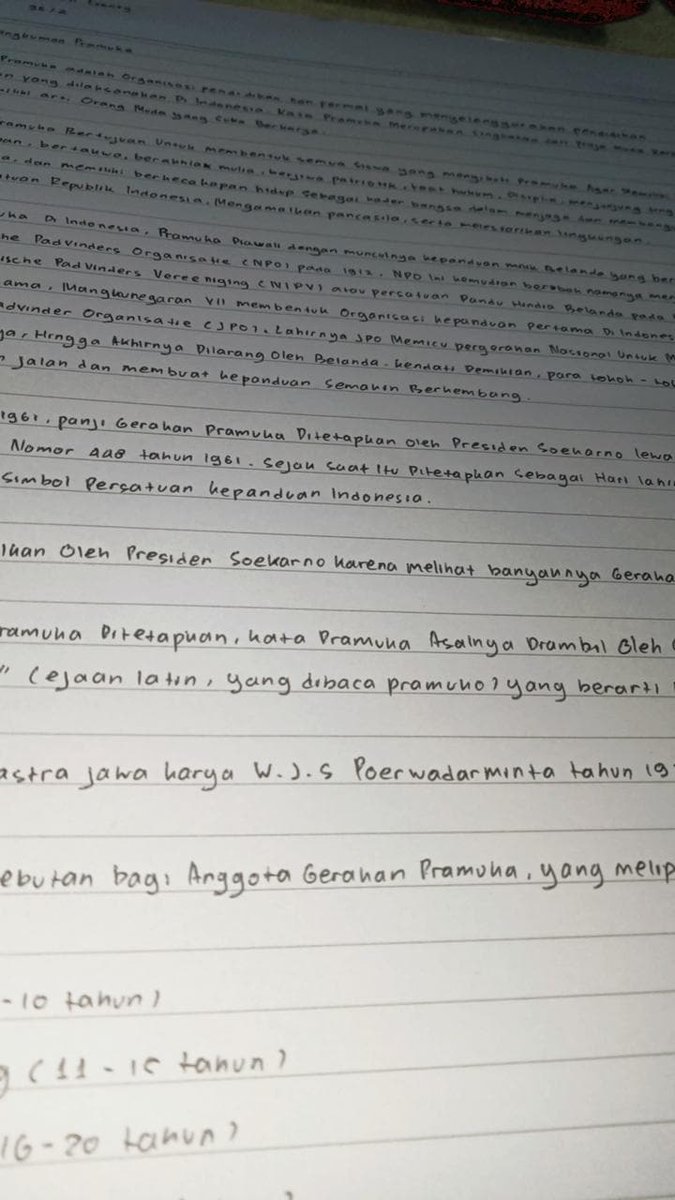 Pramuka
Pramuka adalah Organisasi pendidikan non formal yang menyelenggarakan pendidikan
yang dilaksanakan Di Indonesia. Kata Pramuka Merupakan Singkatan dari Praja Muda
arti Orang Muda yang Suka Berkarya.
Bertujuan Untuk membentuk semua siswa yang mengikuti Pramuka Agar
bertakwa, berakhlak mulia, berjiwa patriotik, taat hukum, disiplin, menjunjung
dan memiliki berkecakapan hidup sebagai kader bangsa dalam menjaga dan
Republik Indonesia, Mengamalkan pancasila, serta melestarikan lingkungan.
Di Indonesia, Pramuka Diawali dengan munculnya kepanduan milik Belanda yang
Padvinders Organisatie (NPO) pada 1912. NPO Ini kemudian berubah namanya
Padvinders Vereeniging (NIPV) atau persatuan Pandu Hindia Belanda pada
Mangkunegaran VII membentuk Organisasi kepanduan Pertama Di
Organisatie (JPO). Lahirnya JPO Memicu pergerakan Nasional Untuk
Hingga Akhirnya Dilarang Oleh Belanda. kendati Demikian, para tokoh -
jalan dan membuat kepanduan Semakin Berkembang.
1961, panji Gerakan Pramuka Ditetapkan Oleh Presiden Soekarno
Nomor 448 tahun 1961. Sejak Saat Itu Ditetapkan Sebagai Hari
Simbol Persatuan kepanduan Indonesia.
Oleh Presiden Soekarno karena melihat banyaknya
Ditetapkan, kata Pramuka Asalnya Diambil Oleh
" (ejaan latin, yang dibaca pramuko) yang berarti
jawa karya W.J.S Poerwadarminta tahun 19
bagi Anggota Gerakan Pramuka, yang
-10 tahun)
(11-15 tahun)
16-20 tahun)